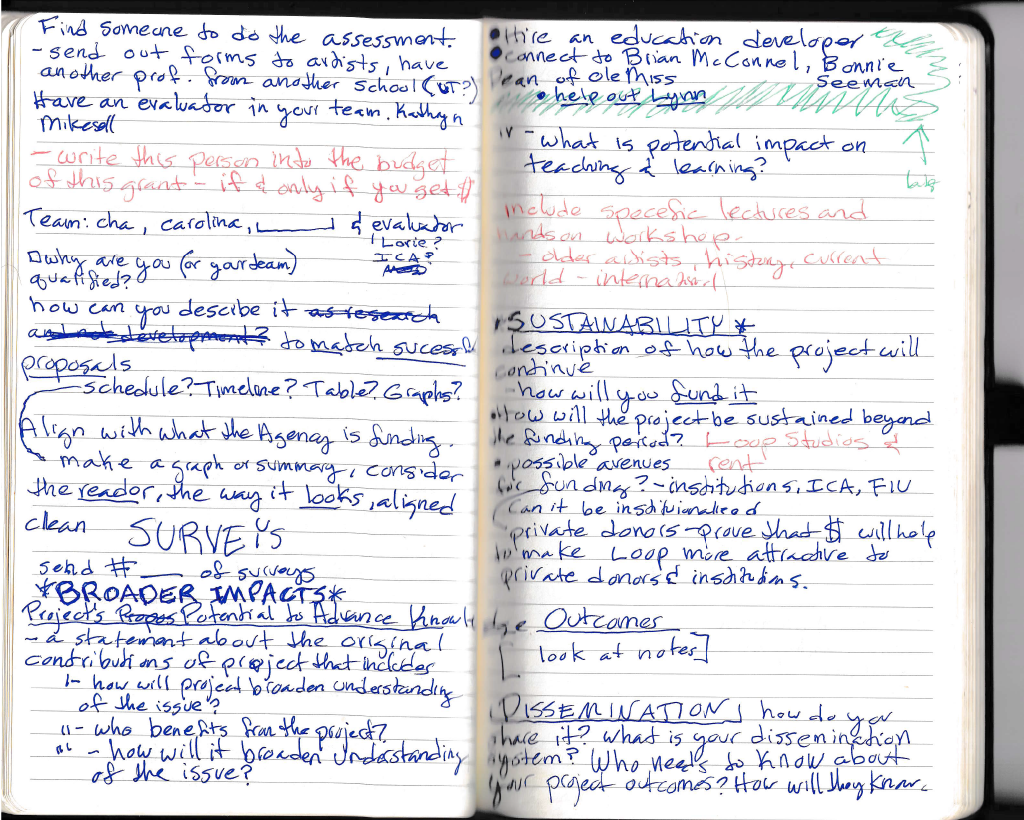 Find someone to do the assessment.
- send out forms to artists, have
another prof. from another school (UT?)
Have an evaluator in your team. Kathryn
Mikesell
- write this person into the budget
of this grant - if & only if you get $
Team: cha, carolina, ______ & evaluator
Lorie?
ICA?
why are you (or your team)
qualified?
how can you describe it as research
and not development? to match sucessful
proposals
- schedule? Timeline? Table? Graphs?
Align with what the Agency is funding.
make a graph or summary, consider
the reader, the way it looks, aligned
clean SURVEYS
send # ___ of surveys
*BROADER IMPACTS*
Project's Propos Potential to Advance Knowledge
- a statement about the original
contributions of project that includes
i- how will project broaden understanding
of the issue?
ii- who benefits from the project?
iii - how will it broaden understanding
of the issue?
• Hire an education developer
• connect to Brian McConnel, Bonnie
Dean of Ole Miss Seeman
• help out Lynn
iv - what is potential impact on
teaching & learning?
include specefic lectures and
hands on workshop.
- older artists, history, current
world - international
• SUSTAINABILITY *
description of how the project will
continue
- how will you fund it
• How will the project be sustained beyond
the funding period? Loop Studios &
• possible avenues rent
for funding? - institutions, ICA, FIU
Can it be instituionalized
private donors - prove that $ will help
to make Loop more attractive to
private donors & institutions.
Outcomes
[look at notes]
DISSEMINATION how do you
share it? What is your dissemination
system? Who needs to know about
your project outcomes? How will they know.